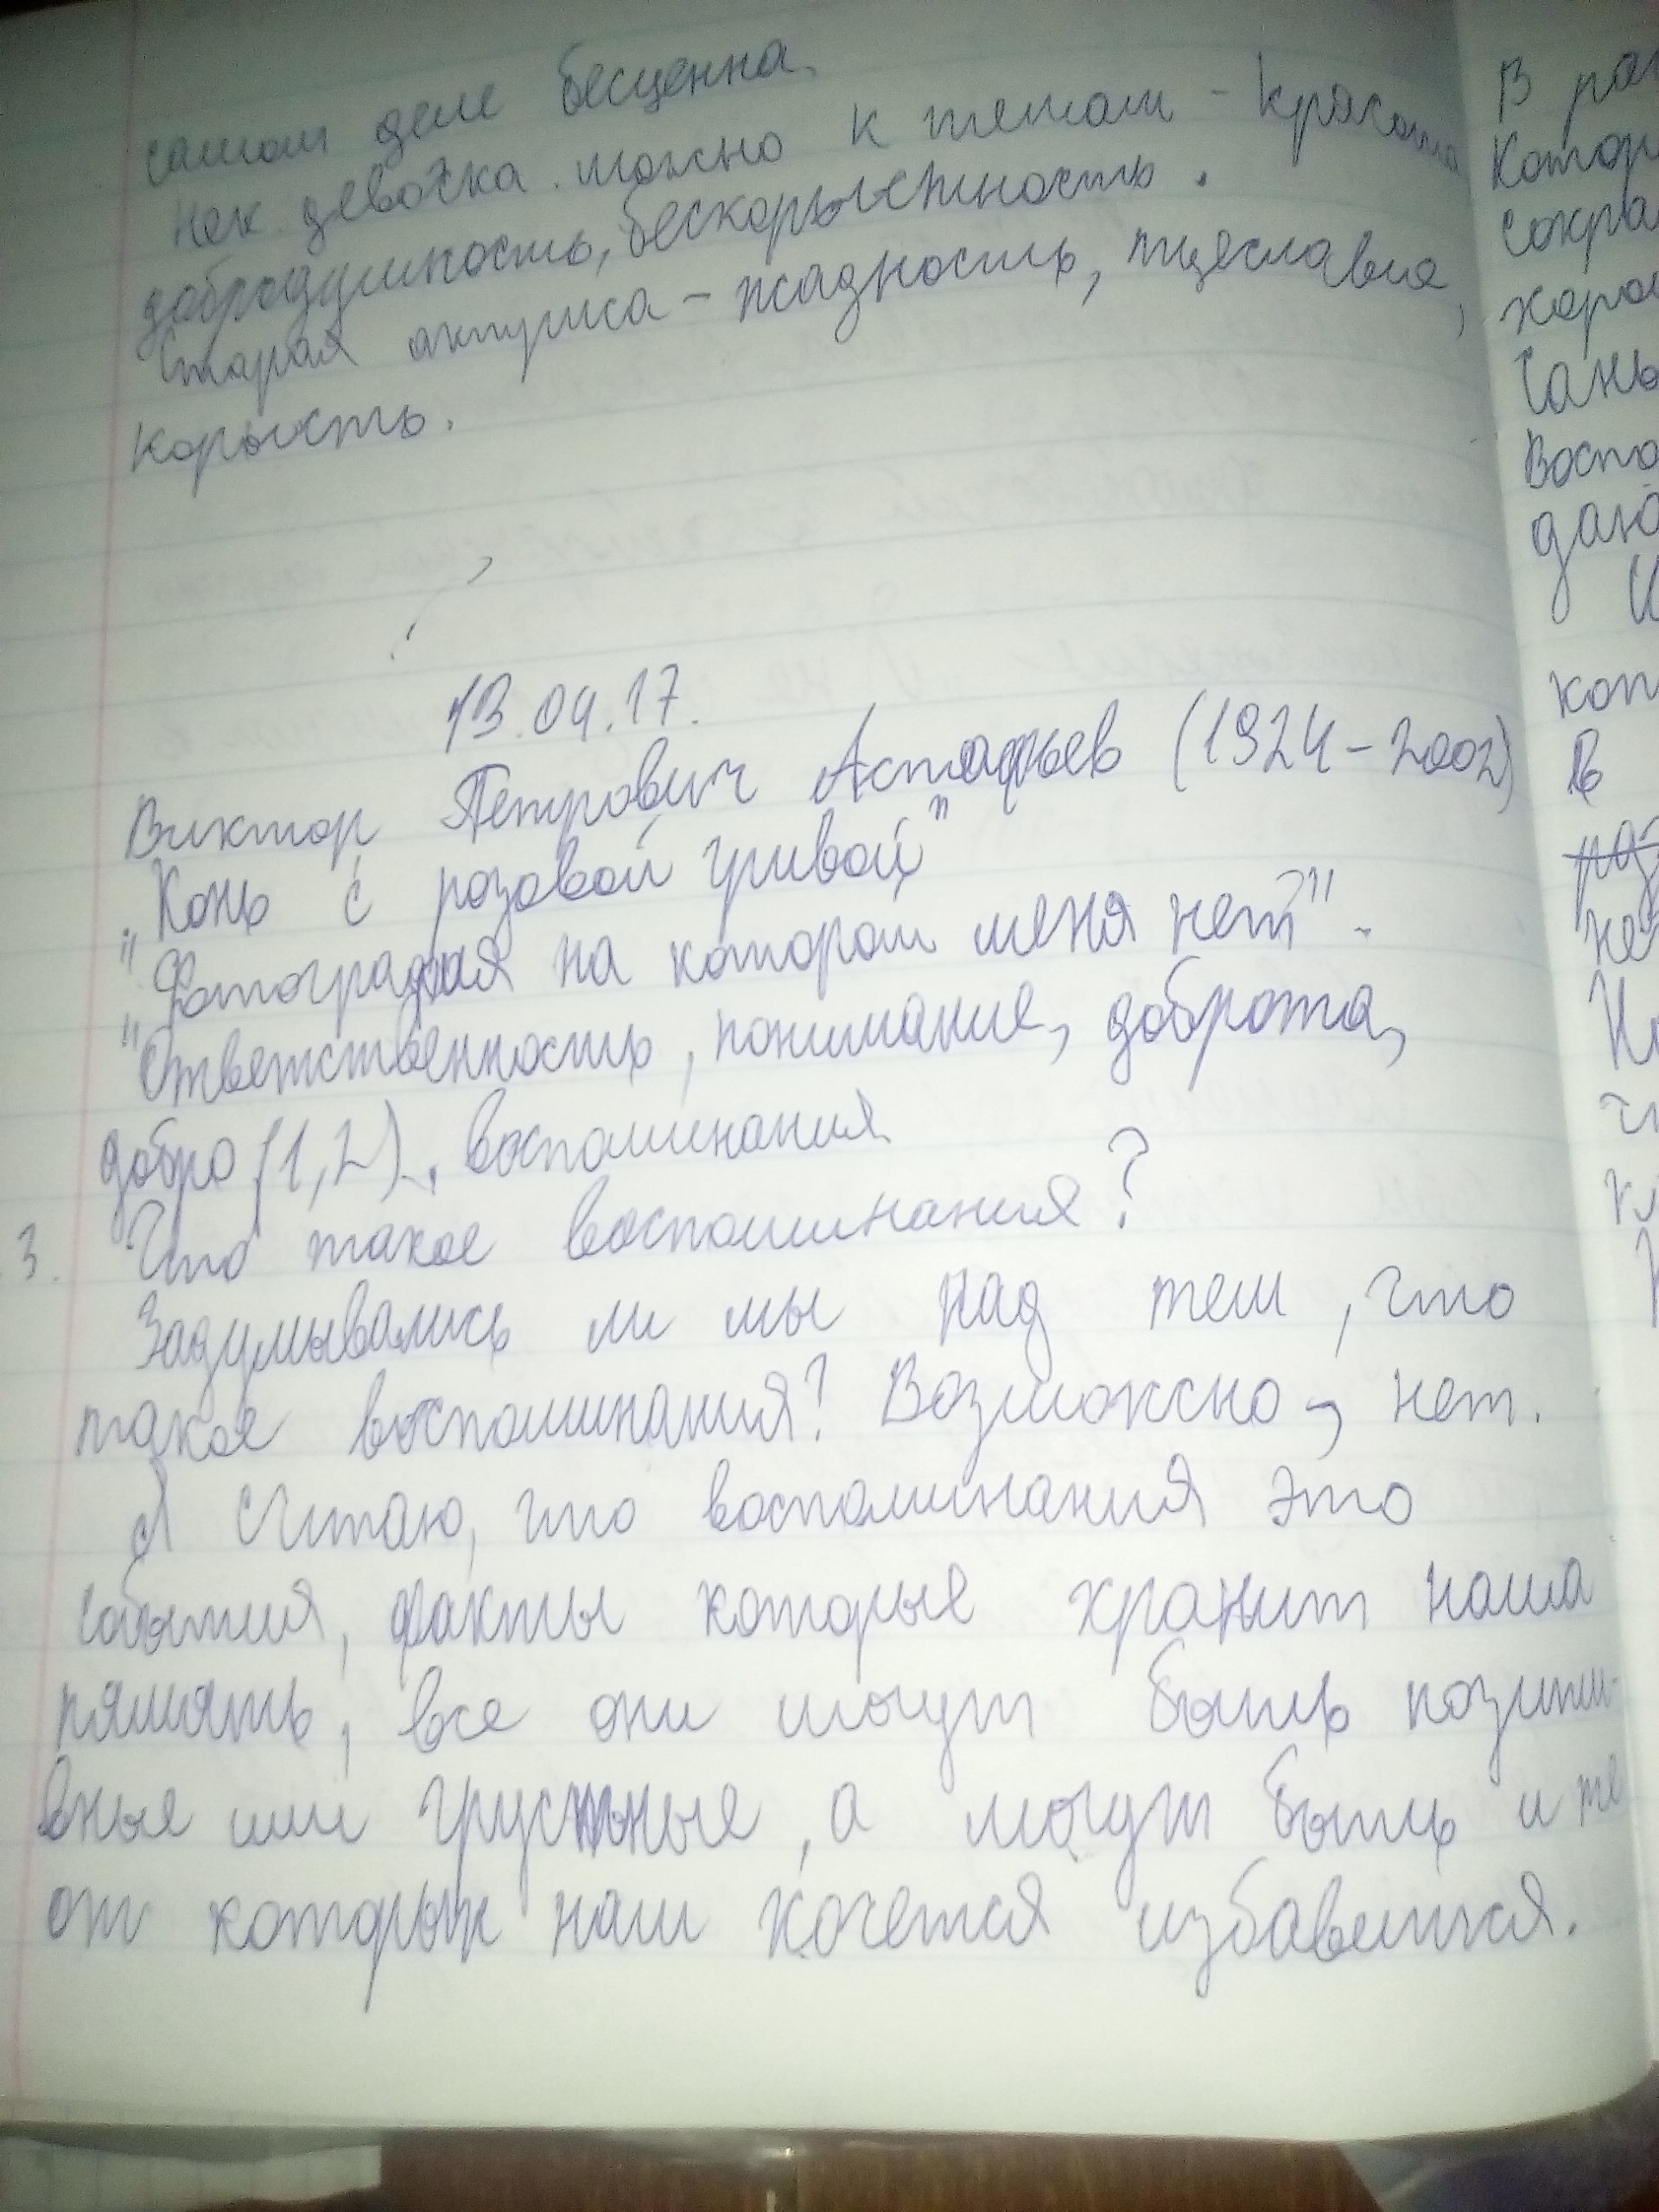 самом деле бесценна.
Нек. девочка можно к темам - красота
добродушность, бескорыстность.
Старая актриса - жадность, тщеславие,
корысть.
13.04.17.
Виктор Петрович Астафьев (1924-2002)
"Конь с розовой гривой"
"Фотография на которой меня нет".
"Ответственность, понимание, доброта,
добро (1,2), воспоминания
3. Что такое воспоминания?
Задумывались ли мы над тем, что
такое воспоминания? Возможно, нет.
Я считаю, что воспоминания это
события, факты которые хранит наша
память, все они могут быть позити-
вные или грустные, а могут быть и те
от которых нам хочется избавиться.
В
Котор
сокра
хорош
воспо
даю
коп
В
не